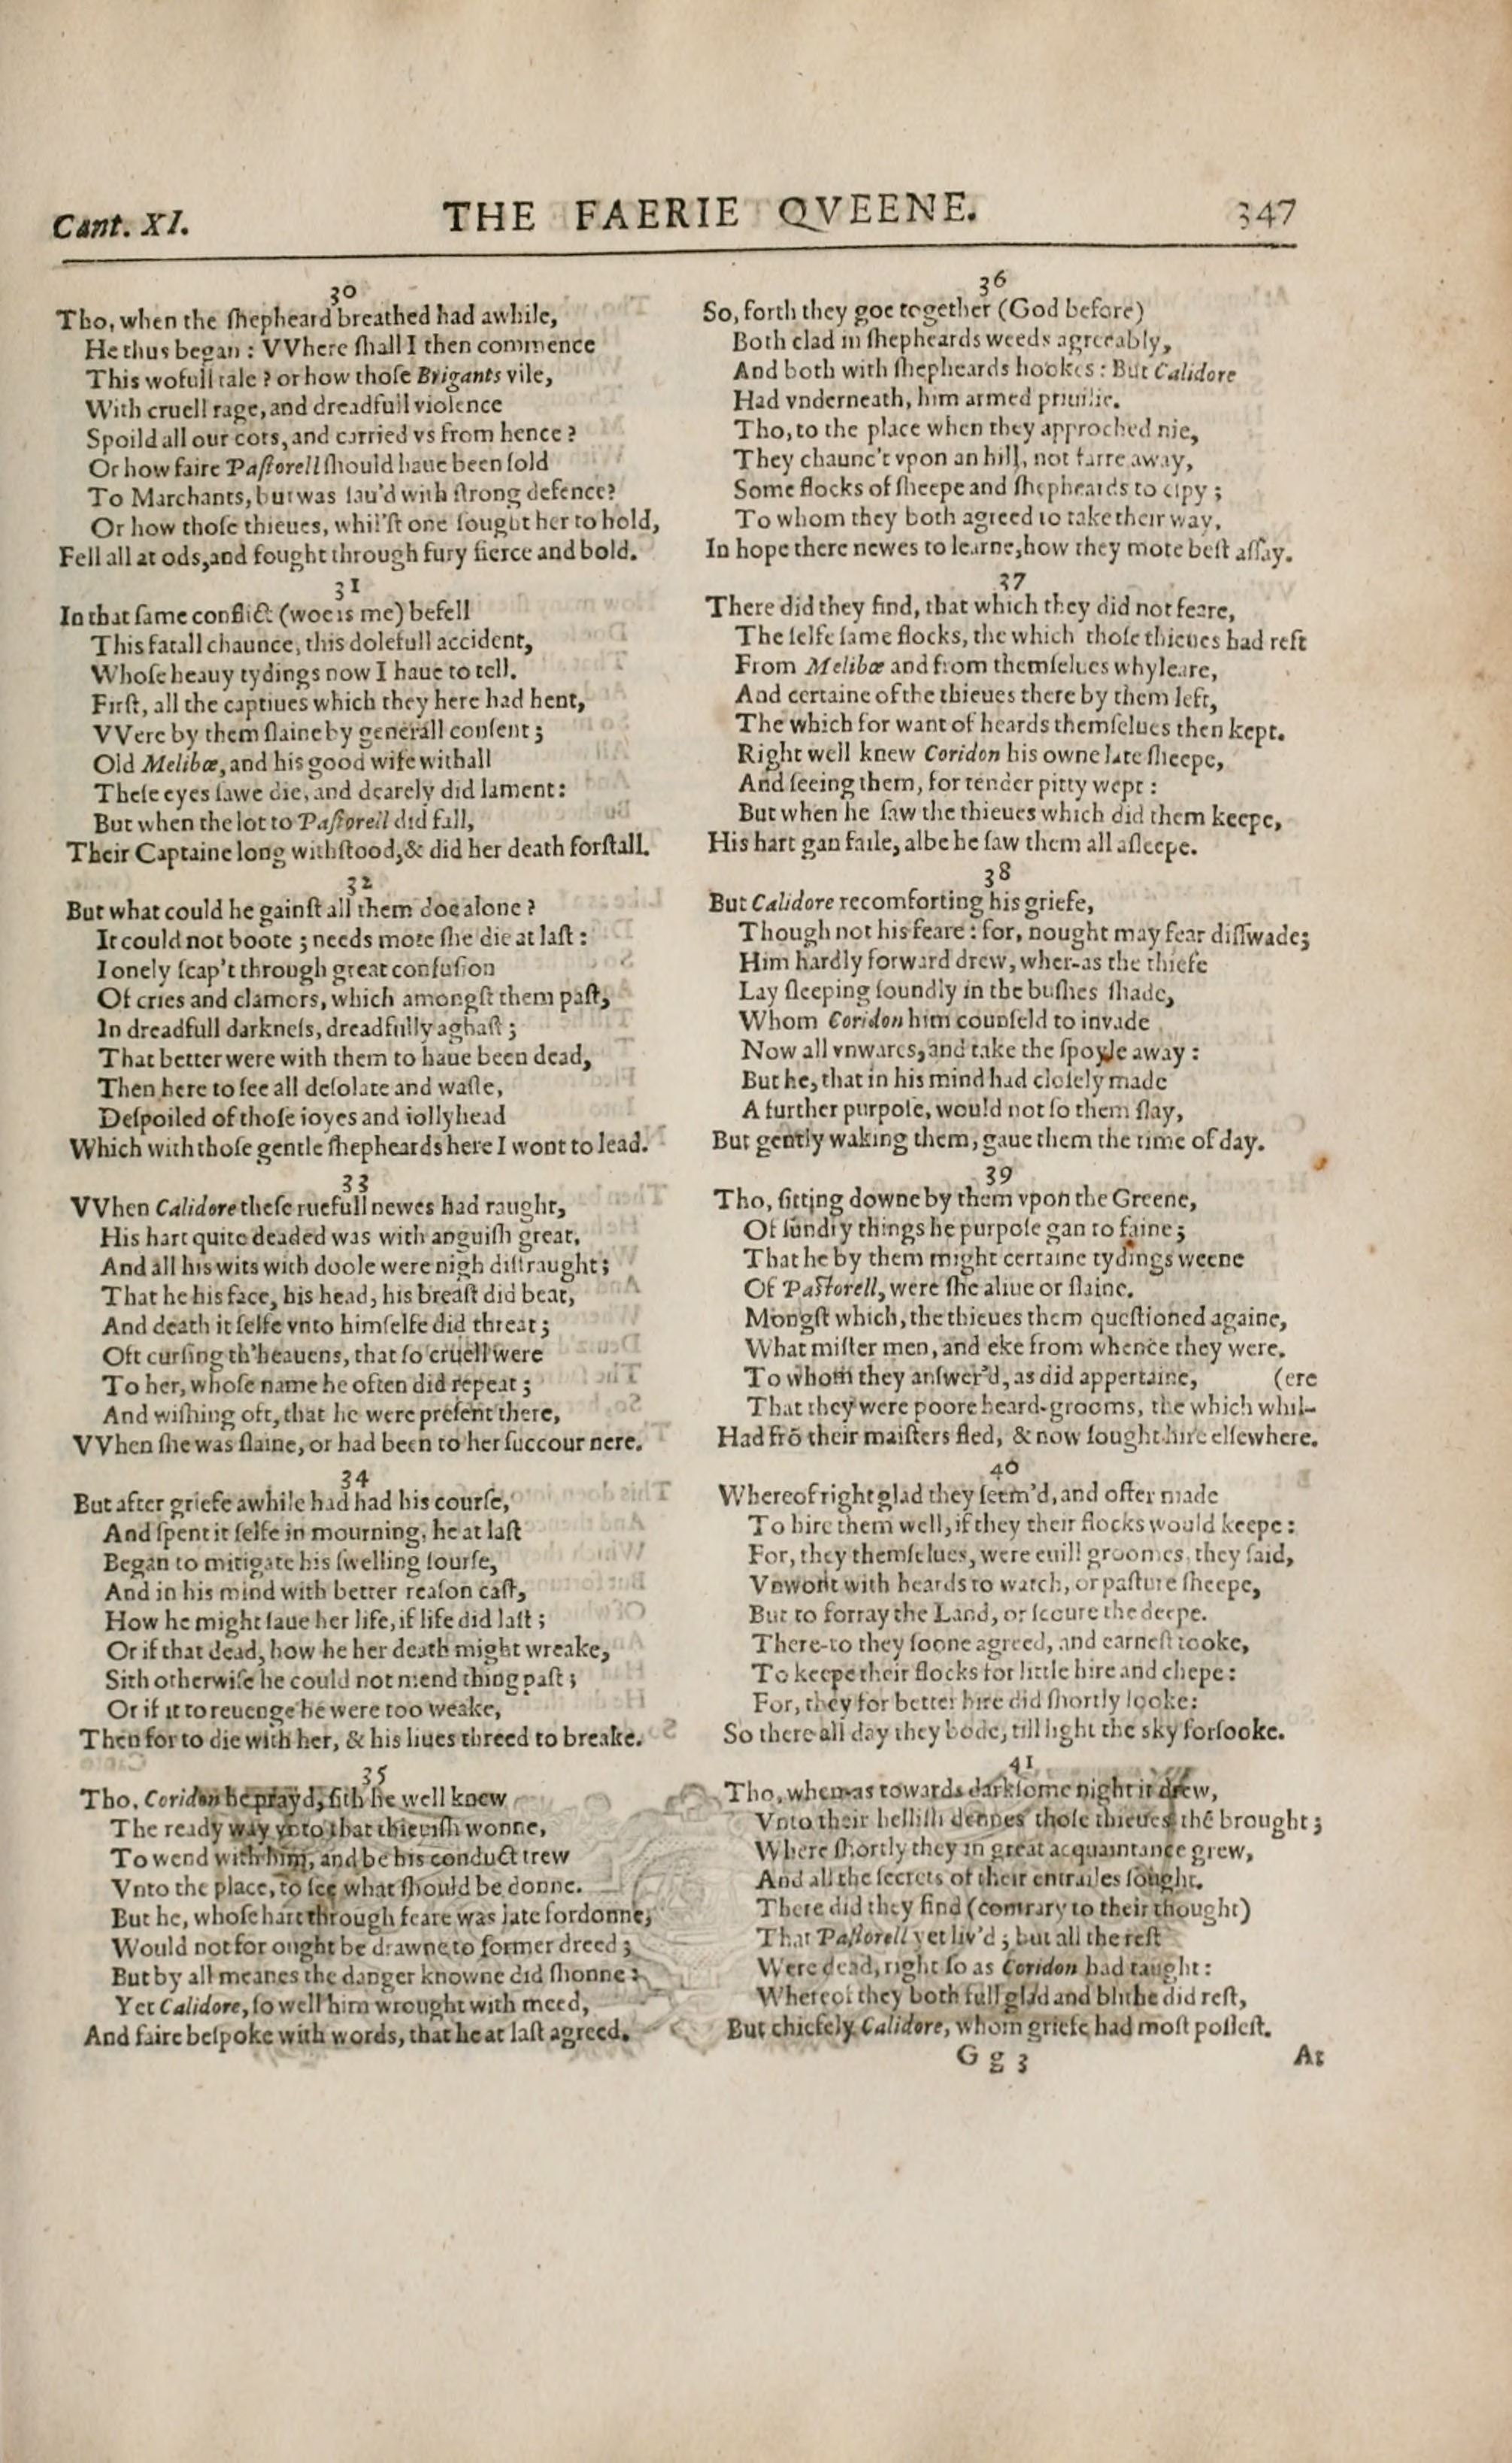 Cant. XI. THE FAERIE QVEENE. 347
30
Tho, when the ſhepheard breathed had awhile,
He thus began : VVhere ſhall I then commence
This wofull tale ? or how thoſe Brigants vile,
With cruell rage, and dreadfull violence
Spoild all our cots, and carried vs from hence ?
Or how faire Paſtorell ſhould haue been ſold
To Marchants, but was ſau'd with ſtrong defence?
Or how thoſe thieues, whil'ſt one ſought her to hold,
Fell all at ods, and fought through fury fierce and bold.
31
In that ſame conflict (woe is me) befell
This fatall chaunce, this dolefull accident,
Whoſe heauy tydings now I haue to tell.
Firſt, all the captiues which they here had hent,
VVere by them ſlaine by generall conſent ;
Old Melibœ, and his good wife withall
Theſe eyes ſawe die, and dearely did lament :
But when the lot to Paſtorell did fall,
Their Captaine long withſtood, & did her death forſtall.
32
But what could he gainſt all them doe alone ?
It could not boote ; needs mote ſhe die at laſt :
I onely ſcap't through great confuſion
Of cries and clamors, which amongſt them paſt,
In dreadfull darkneſs, dreadfully aghaſt ;
That better were with them to haue been dead,
Then here to ſee all deſolate and waſte,
Deſpoiled of thoſe ioyes and iollyhead
Which with thoſe gentle ſhepheards here I wont to lead.
33
VVhen Calidore theſe ruefull newes had raught,
His hart quite deaded was with anguiſh great,
And all his wits with doole were nigh diſtraught ;
That he his face, his head, his breaſt did beat,
And death it ſelfe vnto himſelfe did threat ;
Oft curſing th'heauens, that ſo cruell were
To her, whoſe name he often did repeat ;
And wiſhing oft, that he were preſent there,
VVhen ſhe was ſlaine, or had been to her ſuccour nere.
34
But after griefe awhile had had his courſe,
And ſpent it ſelfe in mourning, he at laſt
Began to mitigate his ſwelling ſourſe,
And in his mind with better reaſon caſt,
How he might ſaue her life, if life did laſt ;
Or if that dead, how he her death might wreake,
Sith otherwiſe he could not mend thing paſt ;
Or if it to reuenge he were too weake,
Then for to die with her, & his liues threed to breake.
35
Tho, Coridon he prayd, ſith he well knew
The ready way vnto that thieuiſh wonne,
To wend with him, and be his conduct trew
Vnto the place, to ſee what ſhould be donne.
But he, whoſe hart through feare was late fordonne,
Would not for ought be drawne to former dreed ;
But by all meanes the danger knowne did ſhonne :
Yet Calidore, ſo well him wrought with meed,
And faire beſpoke with words, that he at laſt agreed.
36
So, forth they goe together (God before)
Both clad in ſhepheards weeds agreeably,
And both with ſhepheards hookes : But Calidore
Had vnderneath, him armed priuilie.
Tho, to the place when they approched nie,
They chaunc't vpon an hill, not farre away,
Some flocks of ſheepe and ſhepheards to eſpy ;
To whom they both agreed to take their way,
In hope there newes to learne, how they mote beſt aſſay.
37
There did they find, that which they did not feare,
The ſelfe ſame flocks, the which thoſe thieues had reft
From Melibœ and from themſelues whyleare,
And certaine of the thieues there by them left,
The which for want of heards themſelues then kept.
Right well knew Coridon his owne late ſheepe,
And ſeeing them, for tender pitty wept :
But when he ſaw the thieues which did them keepe,
His hart gan faile, albe he ſaw them all aſleepe.
38
But Calidore recomforting his griefe,
Though not his feare : for, nought may fear diſſwade;
Him hardly forward drew, wher-as the thiefe
Lay ſleeping ſoundly in the buſhes ſhade,
Whom Coridon him counſeld to invade
Now all vnwares, and take the ſpoyle away :
But he, that in his mind had cloſely made
A further purpoſe, would not ſo them ſlay,
But gently waking them, gaue them the time of day.
39
Tho, ſitting downe by them vpon the Greene,
Of ſundry things he purpoſe gan to faine ;
That he by them might certaine tydings weene
Of Paſtorell, were ſhe aliue or ſlaine.
Mongſt which, the thieues them queſtioned againe,
What miſter men, and eke from whence they were.
To whom they anſwer'd, as did appertaine, (ere
That they were poore heard-grooms, the which whil-
Had frõ their maiſters fled, & now ſought hire elſewhere.
40
Whereof right glad they ſeem'd, and offer made
To hire them well, if they their flocks would keepe :
For, they themſelues, were euill groomes, they ſaid,
Vnwont with heards to watch, or paſture ſheepe,
But to forray the Land, or ſcoure the deepe.
There-to they ſoone agreed, and earneſt tooke,
To keepe their flocks for little hire and chepe :
For, they for better hire did ſhortly looke:
So there all day they bode, till light the sky forſooke.
41
Tho, when-as towards darkſome night it drew,
Vnto their helliſh dennes thoſe thieues thẽ brought ;
Where ſhortly they in great acquaintance grew,
And all the ſecrets of their entrailes ſought.
There did they find (contrary to their thought)
That Paſtorell yet liv'd ; but all the reſt
Were dead, right ſo as Coridon had taught :
Whereof they both full glad and blithe did reſt,
But chiefely Calidore, whom griefe had moſt poſſeſt.
G g 3 At